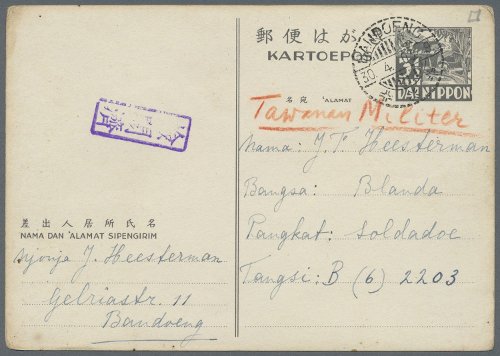 郵便はが
KARTOEPO
BANDOENG
30 4
3½
DAI NIPPON
名宛 'ALAMAT
Tawanan Militer
Nama: J.F. Heesterman
Bangsa: Blanda
Pangkat: soldadoe
Tangsi: B (6) 2203
差出人居所氏名
NAMA DAN 'ALAMAT SIPENGIRIM
Njonja J. Heesterman
Gelriastr. 11
Bandoeng